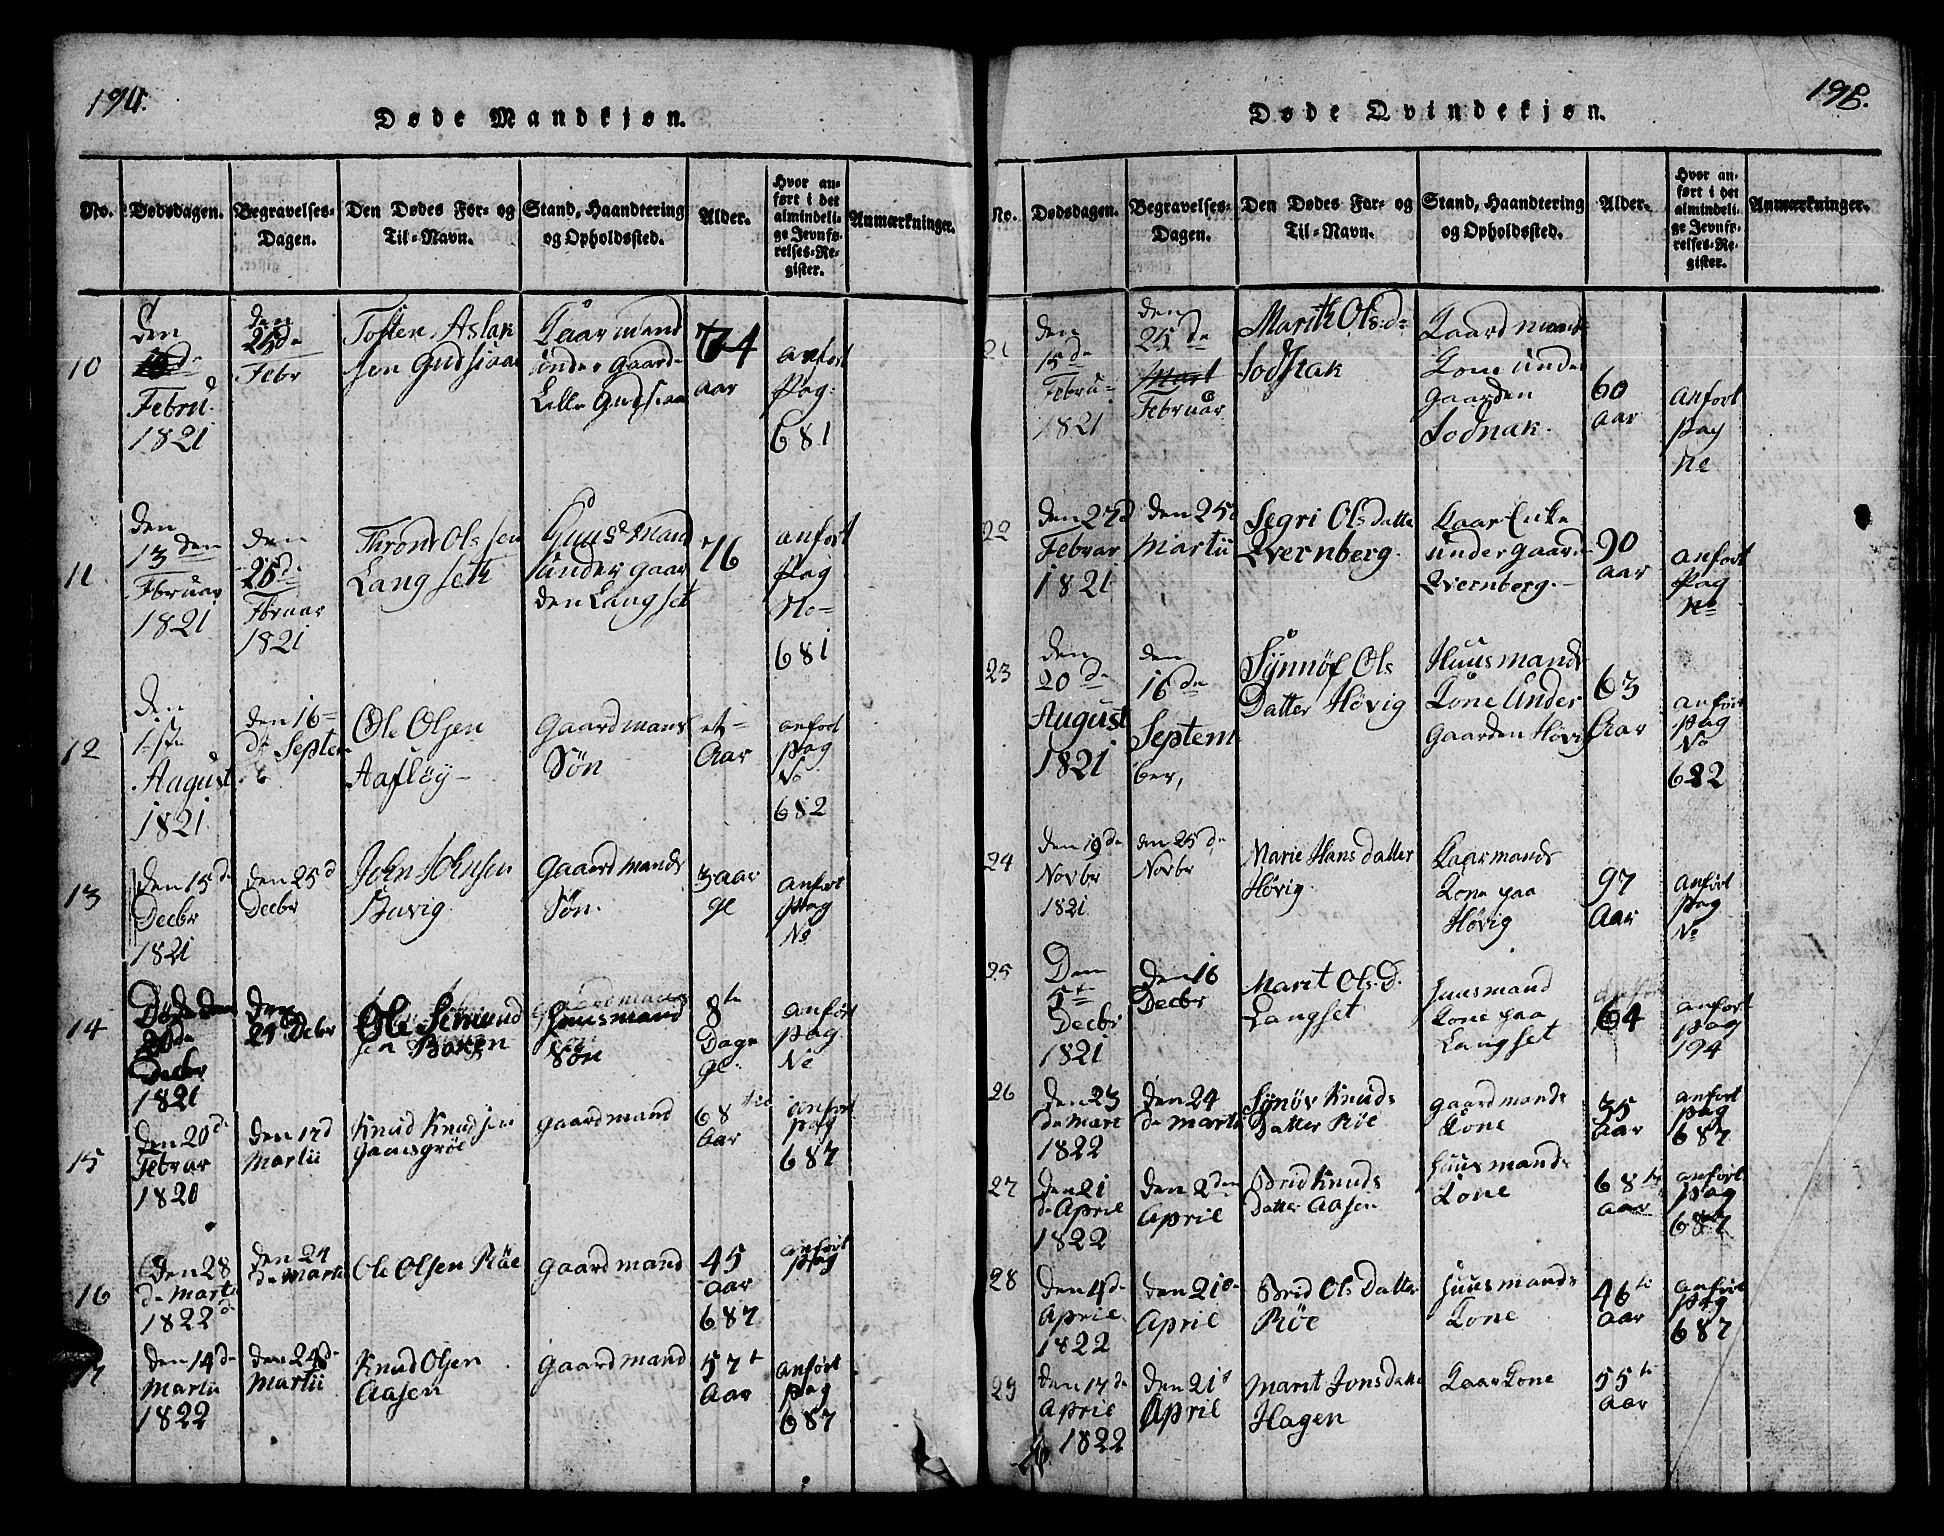 194.
Døde Mandkjøn.
No.
Dødsdagen.
Begravelses-
Dagen.
Den Dødes For- og
Til-Navn.
Stand, Haandtering
og Opholdssted.
Alder.
Hvor an-
ført i det
almindeli-
ge Jevnfø-
relses-Re-
gister.
Anmærkninger.
10
den
Febru.
1821
den
25de
Febr
Tosten Aslak
sen Gudsiaae
Kaarmand
under Gaard
Lille Gudsiaa
74
aar
anført
Pag:
681
11
den
13den
Februar
1821
den
25de
Februar
1821
Thrond Olssen
Langseth
Huusmand
under gaar
den Langset
76
anført
Pag
No
681
12
den
1ste
August
1821
den 16
de Septem
b
Ole Olsen
Aafløy
Gaardmands
Søn
et
Aar
anført
pag
No
682
13
den 15d
Decbr
1821
den 25d
Decbr
John Johnsen
Buvig
Gaardmands
Søn.
3 aar
gl
anført
Pag
No
14
Døde den
20de
Decbr
1821
den
29 Decbr
Ole Semund
sen Bakken
Huusmand
Søn
8te
Dage
gl.
anført
pag
No
15
den 20de
Februar
1820
den 17d
Martii
Knud Knudsen
Gaasgrøe
gaardmand
68
Aar
anført
pag
687
16
den 28
de Martii
1822
den 24
de Martii
Ole Olsen Røe
gaardmand
45
aar
687
anført
pag
17
den 14de
Martii
1822
den 24de
Martii
Knud Olsen
Aasen
gaardmand
57t
Aar
anført
pag
687
195.
Døde Qvindekjøn.
No.
Dødsdagen.
Begravelses-
Dagen.
Den Dødes For- og
Til-Navn.
Stand, Haandtering
og Opholdssted.
Alder.
Hvor an-
ført i det
almindeli-
ge Jevnfø-
relses-Re-
gister.
Anmærkninger.
21
den
15de
Febru-
1821
den
25de
Februar
Marith Ols:d
Sodnak
Kaardmand
Kone under
Gaarden
Sodnak.
60
aar
anført
pag
No
22
den 27d
Februar
1821
den 25de
Martii
Segri Olsdatte
Qvernberg.
Kaar Enke
under gaard
Qvernberg.
90
aar
anført
Pag
No
23
den
20de
August
1821
den
16de
Septem
ber,
Synnøf Ols
Datter Høvig
Huusmands
Kone Under
Gaarden Høvig
63
Aar
anført
Pag
No
682
24
den 19de
Novbr
1821
den 25de
Novbr
Marie Hans datter
Høvig.
Kaarmands
Kone paa
Høvig
97
Aar
anført
Pag
No
25
Den
5te
Decbr
1821
den 16
Decbr
Marit Ols.D.
Langset
Huusmand
Kone paa
Langset
64
anført
pag
194
26
den 23
de Mart
1822
den 24
de Martii
Synøv Knuds
Datter Røe
gaardmands
Kone
35
aar
anført
pag
687
27
den 21
de April
1822
den 2den
April
Brid Knuds
Datter Aasen
Huusmands
Kone
68
aar
anført
pag
687
28
den 4de
April
1822
den 21de
April
Brid Ols Datter
Røe
Huusmands
Kone
46ti
Aar
anført
pag
687
29
den 17de
April
1822
den 21d
April
Marit Jonsdatte
Hagen
Kaar Kone
55ti
Aar